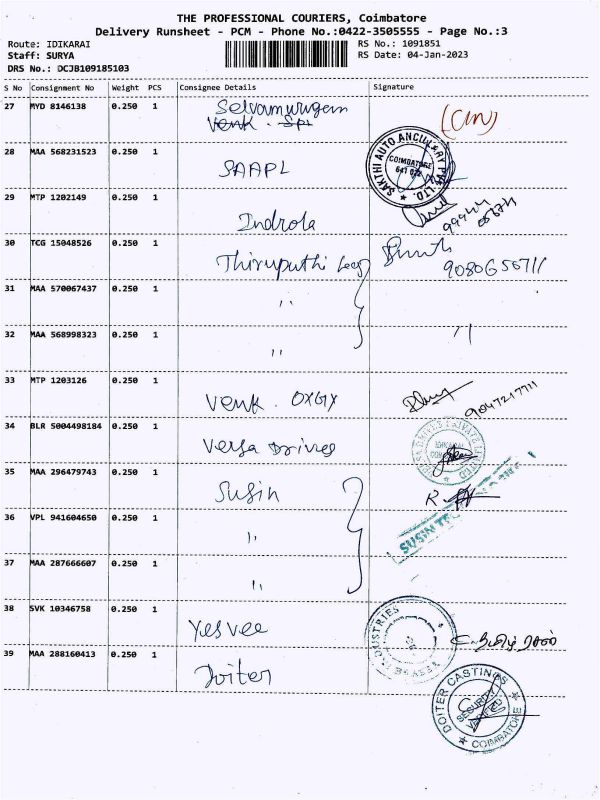 THE PROFESSIONAL COURIERS, Coimbatore
Delivery Runsheet - PCM - Phone No.:0422-3505555 - Page No.:3
Route: IDIKARAI
RS No.: 1091851
Staff: SURYA
RS Date: 04-Jan-2023
DRS No.: DCJB109185103
S No Consignment No Weight PCS Consignee Details Signature
27 MYD 8146138 0.250 1 Selvamurugan
Venk .
28 MAA 568231523 0.250 1 SAAPL
SAKTHI AUTO ANCILLARY PVT. LTD.
COIMBATORE
29 MTP 1202149 0.250 1 Indrola
99944
30 TCG 15048526 0.250 1 Thirupathi
9080656711
31 MAA 570067437 0.250 1 "
32 MAA 568998323 0.250 1 " "
33 MTP 1203126 0.250 1 Venk . OXGIX
9047217711
34 BLR 5004498184 0.250 1 Versa Drives
35 MAA 296479743 0.250 1 Susin
SUSIN
36 VPL 941604650 0.250 1 "
37 MAA 287666607 0.250 1 "
38 SVK 10346758 0.250 1 Yesvee
INDUSTRIES
39 MAA 288160413 0.250 1 Doiter
DOITER CASTINGS
SECURITY
VERIFIED
COIMBATORE